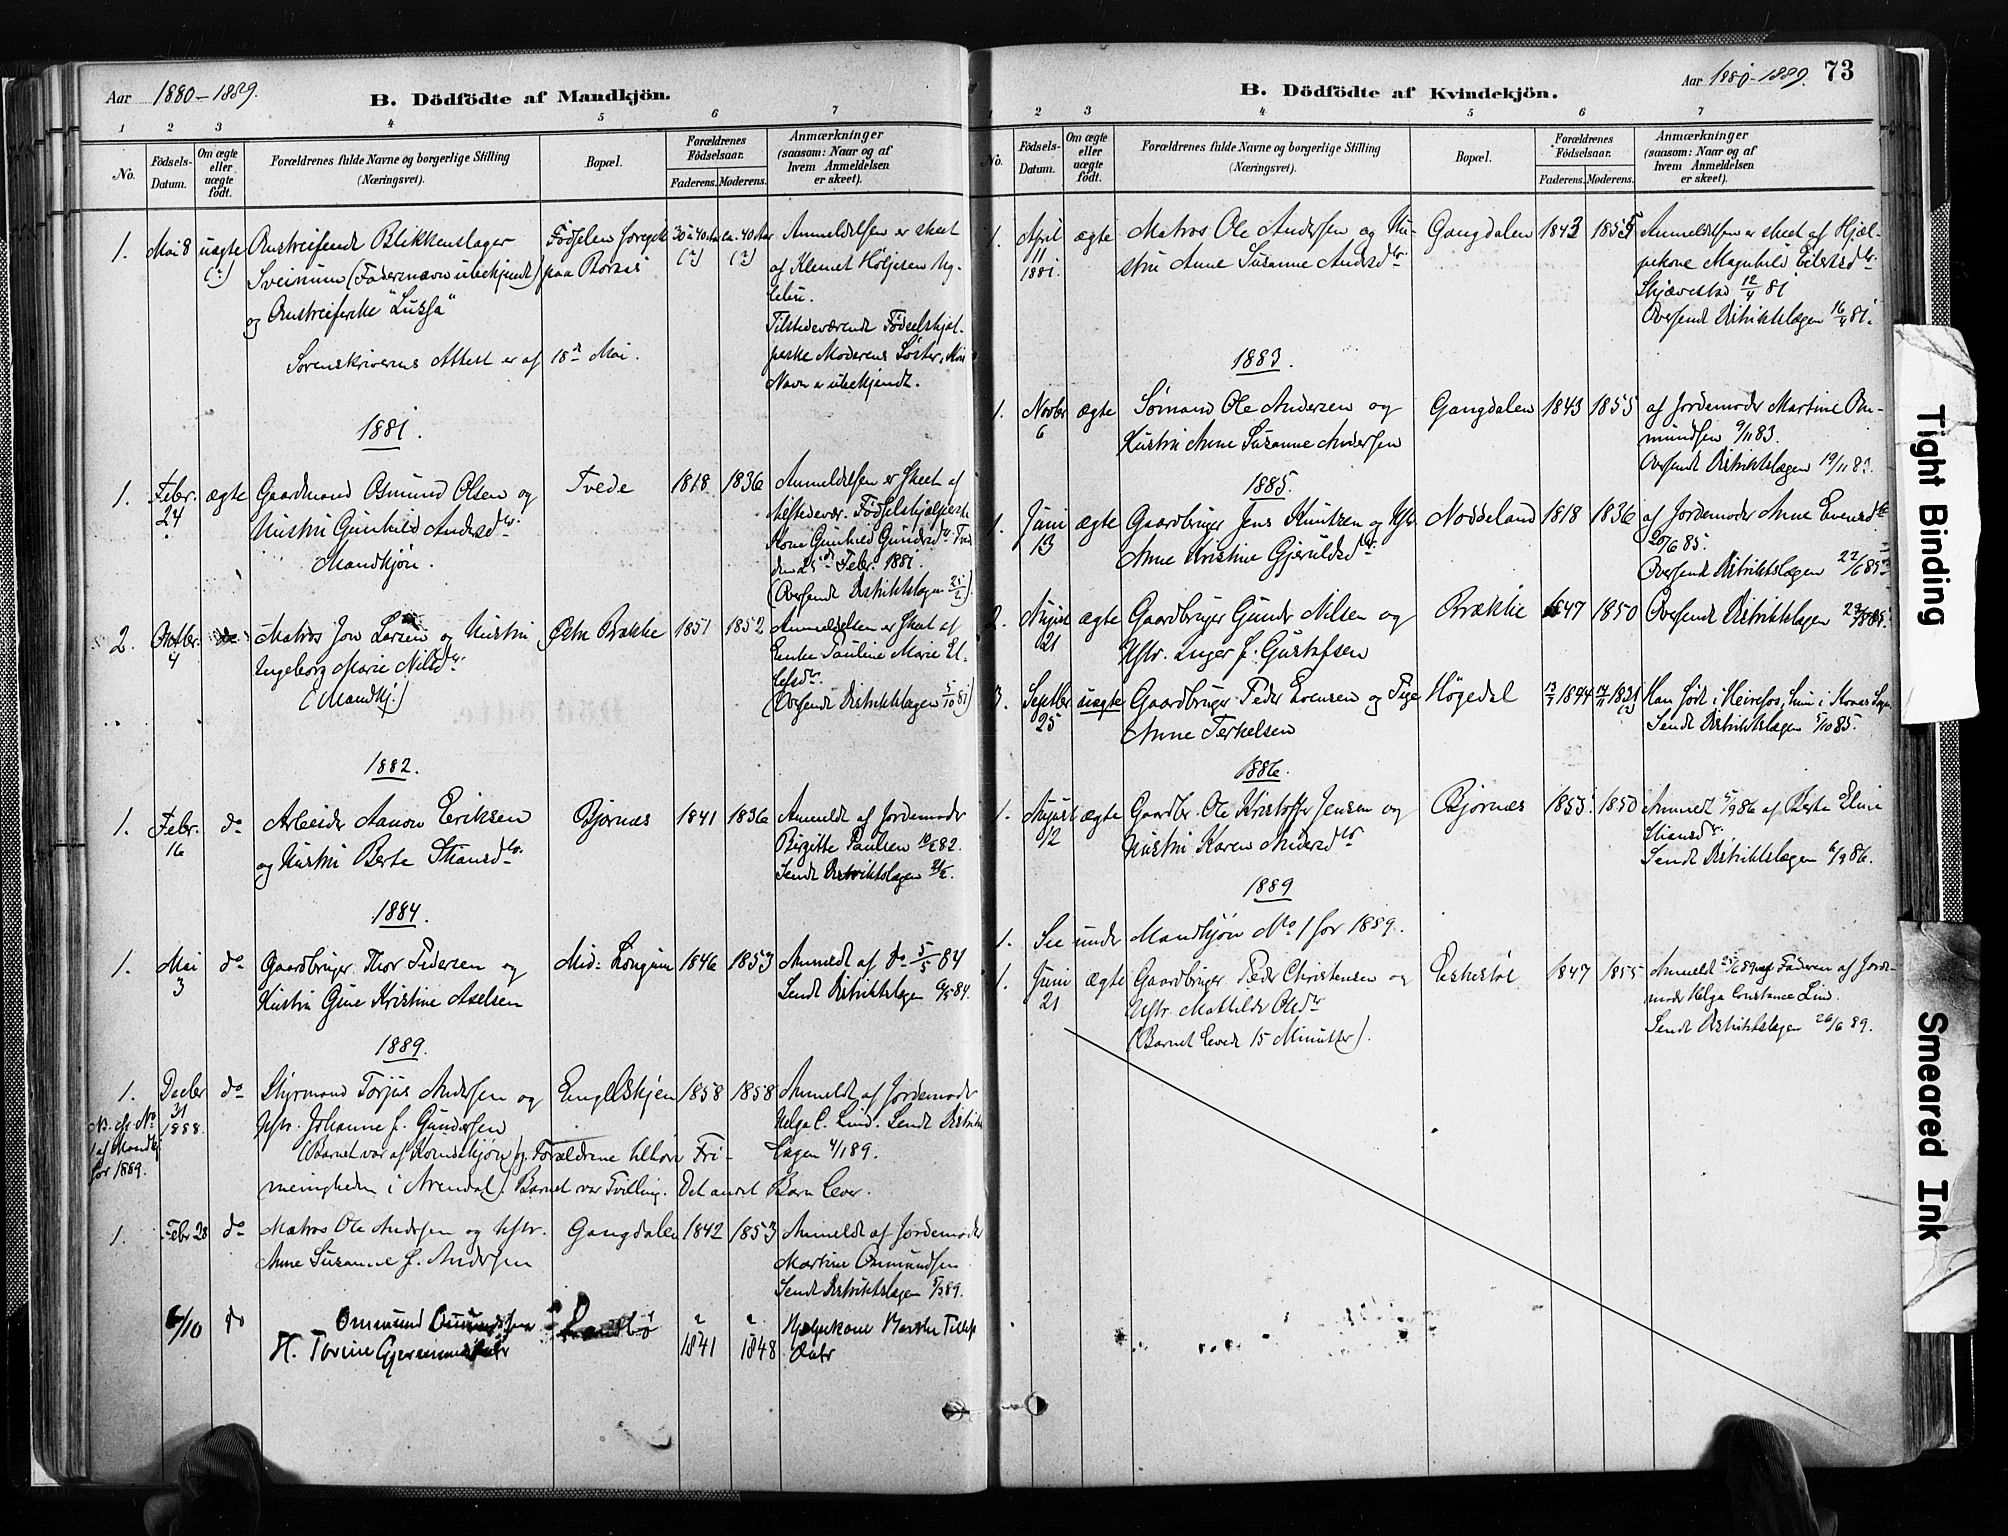 Aar 1880-1889.
B. Dödfödte af Mandkjön.
1 2 3 4 5 6 7
No.
Födsels-Datum.
Om ægte eller uægte födt.
Forældrenes fulde Navne og borgerlige Stilling (Næringsvei).
Bopæl.
Forældrenes Födselsaar.
Faderens. Moderens.
Anmærkninger (saasom: Naar og af hvem Anmeldelsen er skeet).
1. Mai 8 uægte (?) Omstreifende Blikkenslager Fødselen foregik 30 à 40 Aar (?) ca. 40 Aar (?) Anmeldelsen er skeet
Sveinum (Fadernavn ubekjendt) paa af Klemet Höljesen
og Omstreiferske "Lussa"
Tilstedeværende Fødselshjæl-
Sorenskriverens Attest er af 18de Mai. perske Moderens Søster,
Navn er ubekjendt.
1881.
1. Febr. 24 ægte Gaardmand Osmund Olsen og Tvede 1818 1836 Anmeldelsen er skeet af
Hustru Gunhild Andersdtr. tilstedevær. Fødselshjælperske
Mandkjön. Kone Gunhild
den 25de Febr. 1881.
(Oversendt Distriktslægen
2. Oktbr. 4 Matros Jon Larsen og Hustru Østre Brække 1851 1852 Anmeldelsen er skeet af
Ingeborg Marie Nilsdtr. Enke Pauline Marie El-
(Mandkj.) lefsdtr.
(Oversendt Distriktslægen 5/10 81)
1882.
1. Febr. 16 do Arbeider Aanon Eriksen Bjornæs 1841 1836 Anmeldt af Jordemoder
og Hustru Berte Stiansdtr. Birgitte Paulsen
Sendt Distriktslægen
1884.
1. Mai 3 do Gaardbruger Thor Pedersen og Mid: Longum 1846 1853 Anmeldt af do 5/5 84
Hustru Gine Kristine Axelsen Sendt Distriktslægen 6/5 84.
1889.
1. Decbr 31 1888. do Styrmand Torjus Andersen og Engelskjen 1858 1858 Anmeldt af Jordemoder
Hstr. Johanne f. Gundersen Helga C. Lind. Sendt Distrikts-
(Barnet var af Kvindekjøn) og Forældrene tilhøre Fri- lægen 4/1 89.
menigheden i Arendal). Barnet var Tvilling. Det andet Barn lever.
1. Febr 28 do Matros Ole Andersen og Hstr. Gangdalen 1842 1853 Anmeldt af Jordemoder
Anne Susanne f. Andersen Martine Osmundsen
Sendt Distriktslægen 5/3 89.
6/10 do Omsund
H. Torine 1841 1848
Aar 1880-1889. 73
B. Dödfödte af Kvindekjön.
1 2 3 4 5 6 7
No.
Födsels-Datum.
Om ægte eller uægte födt.
Forældrenes fulde Navne og borgerlige Stilling (Næringsvei).
Bopæl.
Forældrenes Födselsaar.
Faderens. Moderens.
Anmærkninger (saasom: Naar og af hvem Anmeldelsen er skeet).
1. April 11 1881. ægte Matros Ole Andersen og Hu- Gangdalen 1843 1855 Anmeldelsen er skeet af Hjæl-
stru Anne Susanne Andersdtr. pekone Magnhild Eilefsdtr.
Skjævestad 12/4 81
Oversendt Distriktslægen 16/4 81.
1883.
1. Novbr 6 ægte Sømand Ole Andersen og Gangdalen 1843 1855 af Jordemoder Martine Os-
Hustru Anne Susanne Andersen mundsen 9/11 83.
Oversendt Distriktslægen 19/11 83.
1885.
1. Juni 13 ægte Gaardbruger Jens Knutzen og Hstr Noddeland 1818 1836 af Jordemoder Anne Evensdtr
Anne Kristine Gjeruldsdtr. 20/6 85.
Oversendt Distriktslægen 22/6 85
2. August 21 ægte Gaardbruger Gunder Nilsen og Brække 1847 1850 Oversendt Distriktslægen
Hstr. Inger f. Gustafsen
3. Septbr 25 uægte Gaardbruger Peder Evensen og Pige Högedal
Anne Terkelsen Sendt Distriktslægen 5/10 85.
1886.
1. August 12 ægte Gaardbr. Ole Kristoffer Jensen og Bjornæs 1853 1850 Anmeldt 5/9 86 af Berte Elvine
Hustru Karen Andersdtr Stiansdtr.
Sendt Distriktslægen 6/9 86.
1889
1. See under Mandkjön No 1 for 1889.
1. Juni 21 ægte Gaardbruger Peder Christensen og 1847 1855 Anmeldt 25/6 89 af Faderen af Jorde-
Hstr. Mathilde Olsdtr moder Helga Constance Lind.
(Barnet levede 15 Minutter). Sendt Distriktslægen 26/6 89.
Tight Binding
Smeared Ink